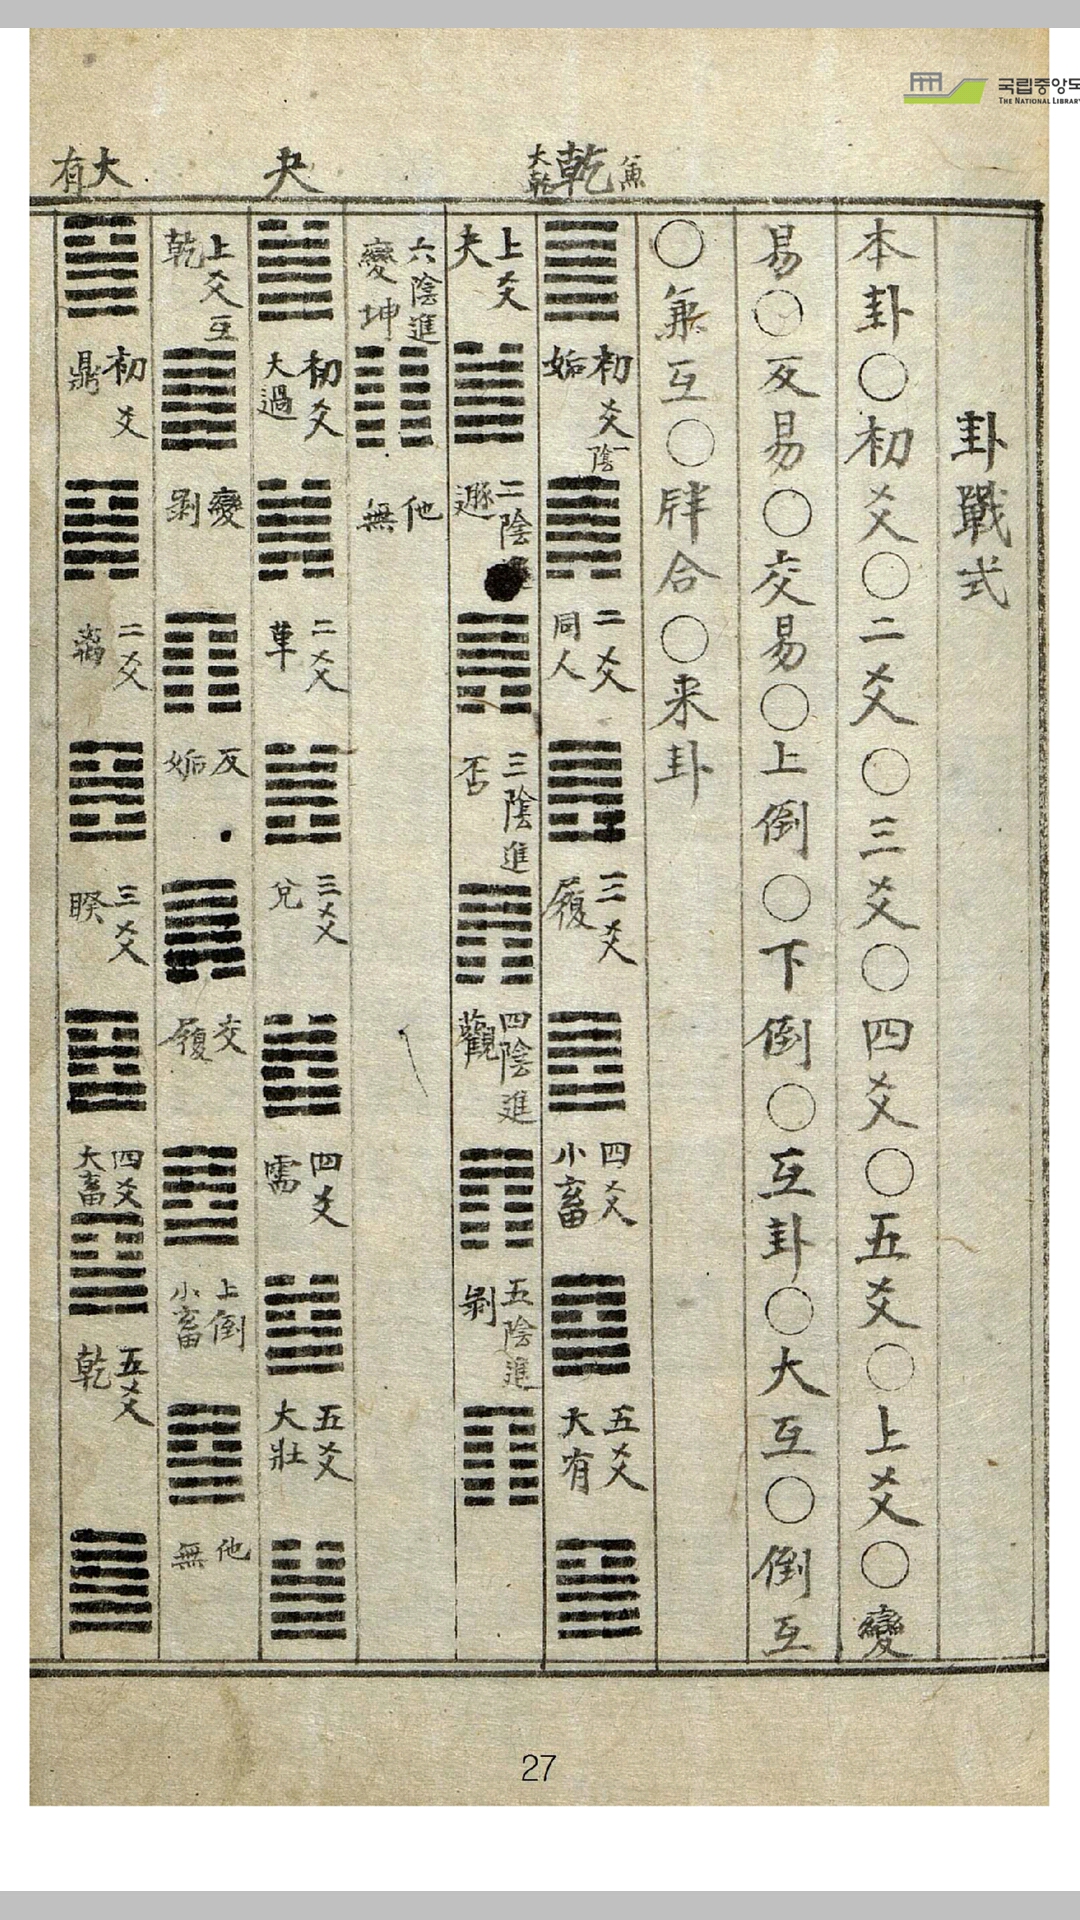 국립중앙도
THE NATIONAL LIBRARY
卦戰式
本卦〇初爻〇二爻〇三爻〇四爻〇五爻〇上爻〇變
易〇反易〇交易〇上倒〇下倒〇互卦〇大互〇倒互
〇兼互〇牉合〇来卦
乾 大乾
初爻 姤 一陰
二爻 同人
三爻 履
四爻 小畜
五爻 大有
上爻 夬
二陰 遯
三陰進 否
四陰進 觀
五陰進 剝
六陰進 變坤
他無
夬
初爻 大過
二爻 革
三爻 兌
四爻 需
五爻 大壯
上爻 乾 互
變 剝
反 姤
交 履
上倒 小畜
他無
大有
初爻 鼎
二爻 離
三爻 睽
四爻 大畜
五爻 乾
27